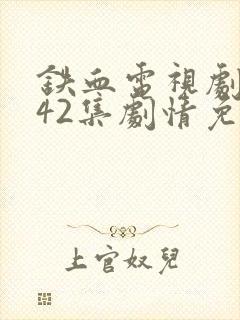 鉄血電視劇
42集劇情免
上官奴兒